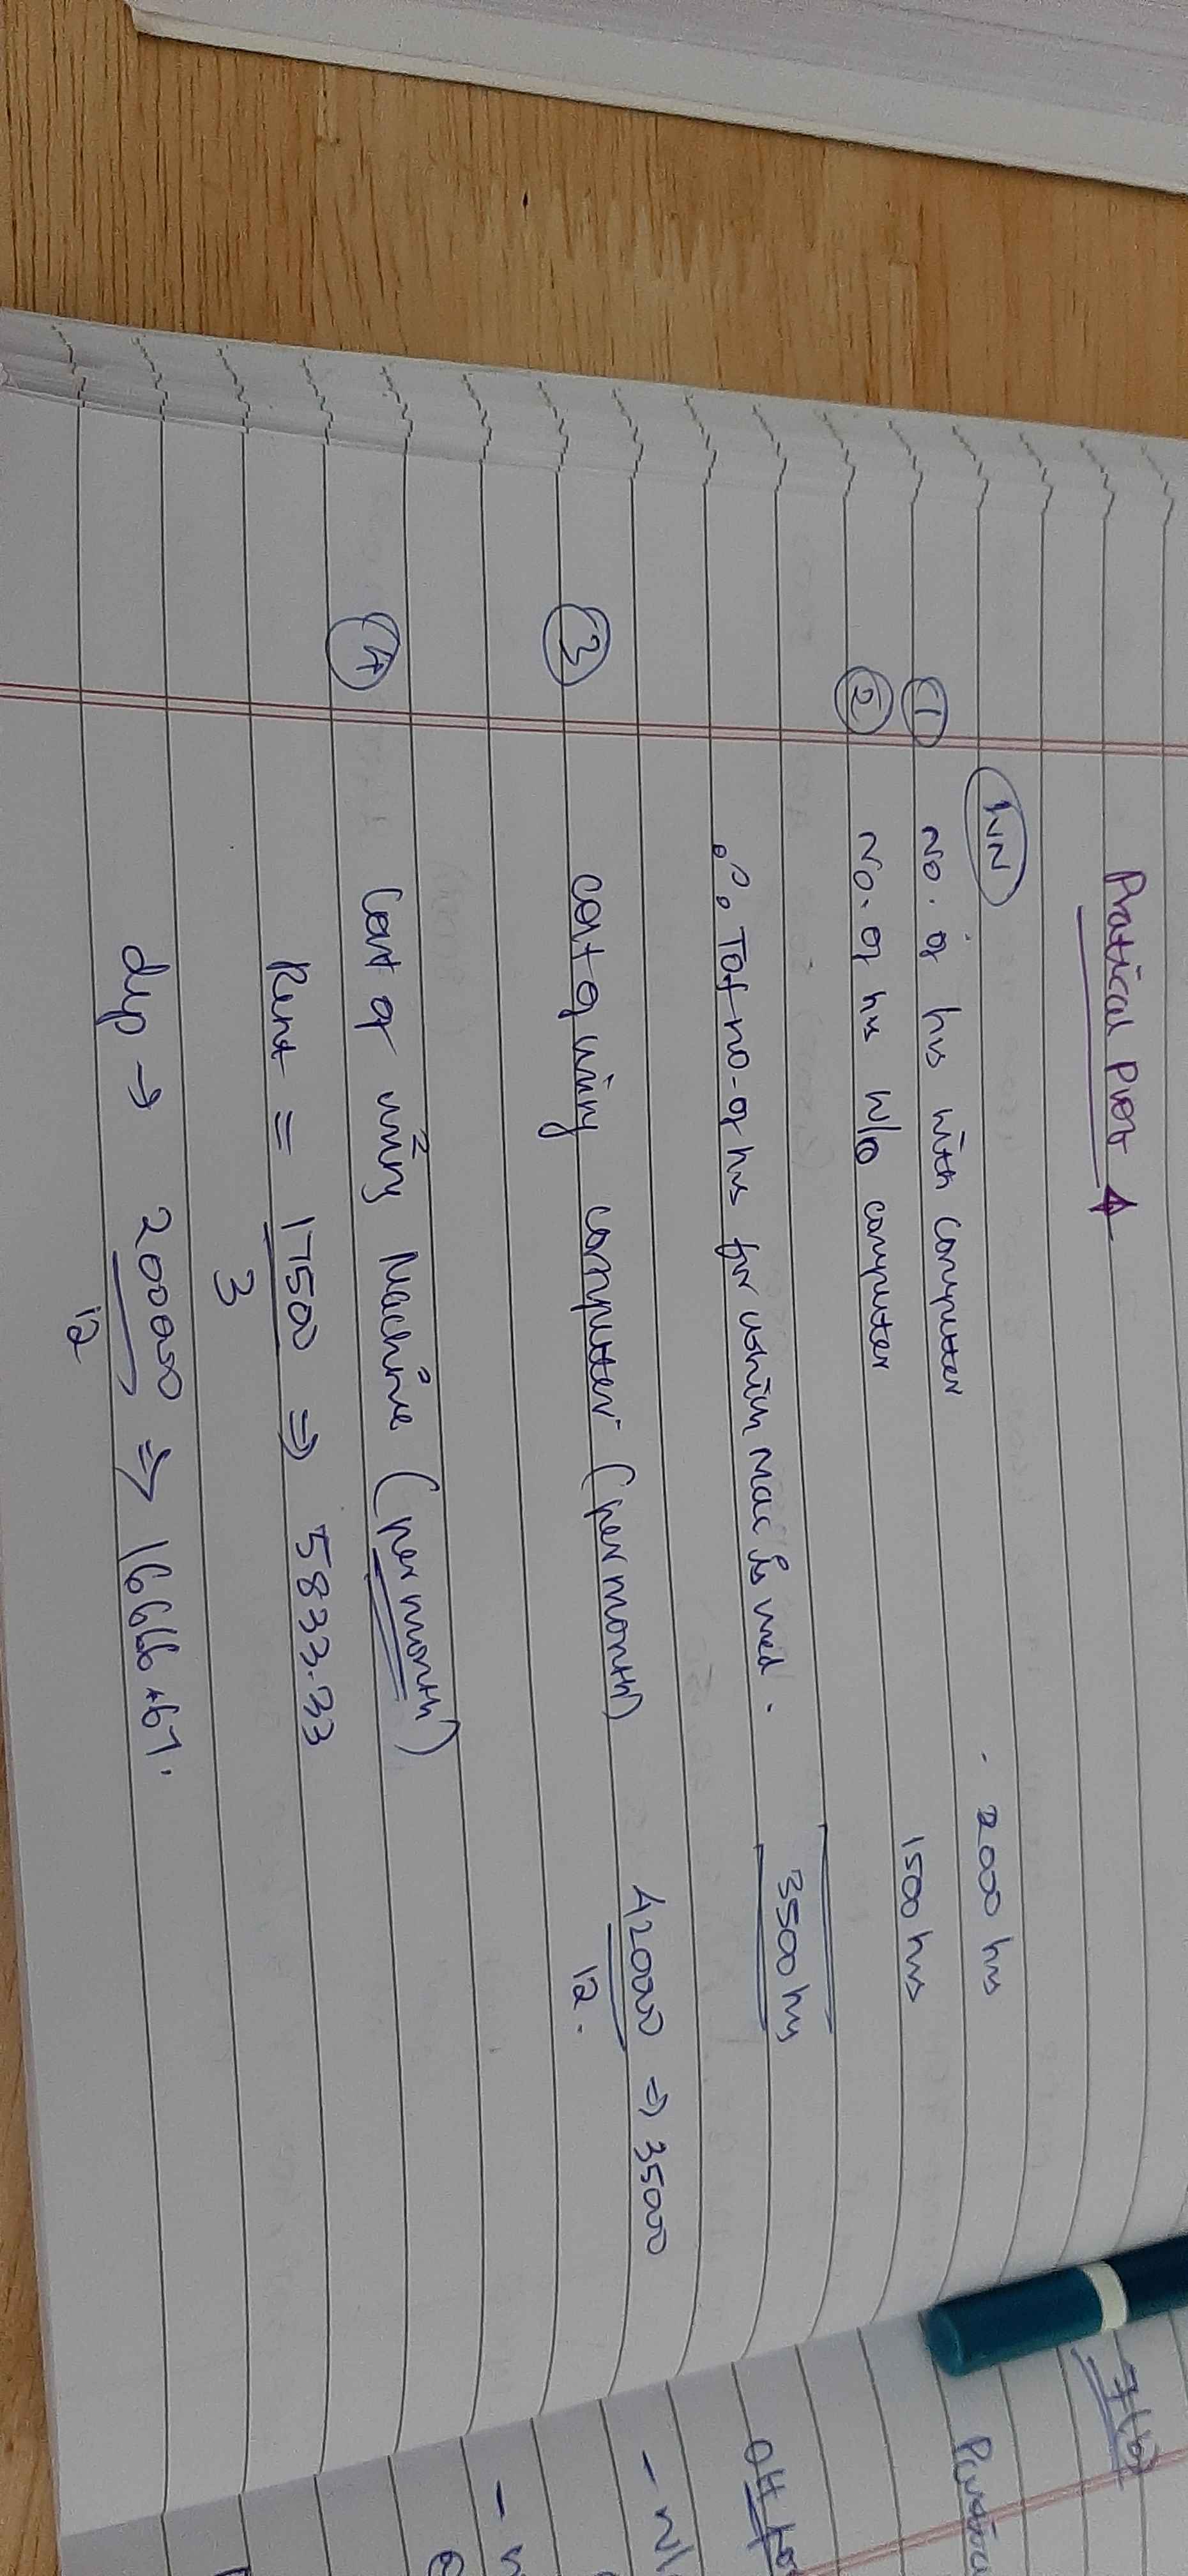 Pratical Prob
WN
① No. of hrs with computer 2000 hrs
② No. of hrs w/o computer 1500 hrs
∴ Tot no. of hrs for which mac is used. 3500 hrs
③ Cost of using computer (per month) 420000 ⇒ 35000
12.
④ Cost of using Machine (per month)
Rent = 17500 ⇒ 5833.33
3
dep → 200000 ⇒ 16666.67.
12